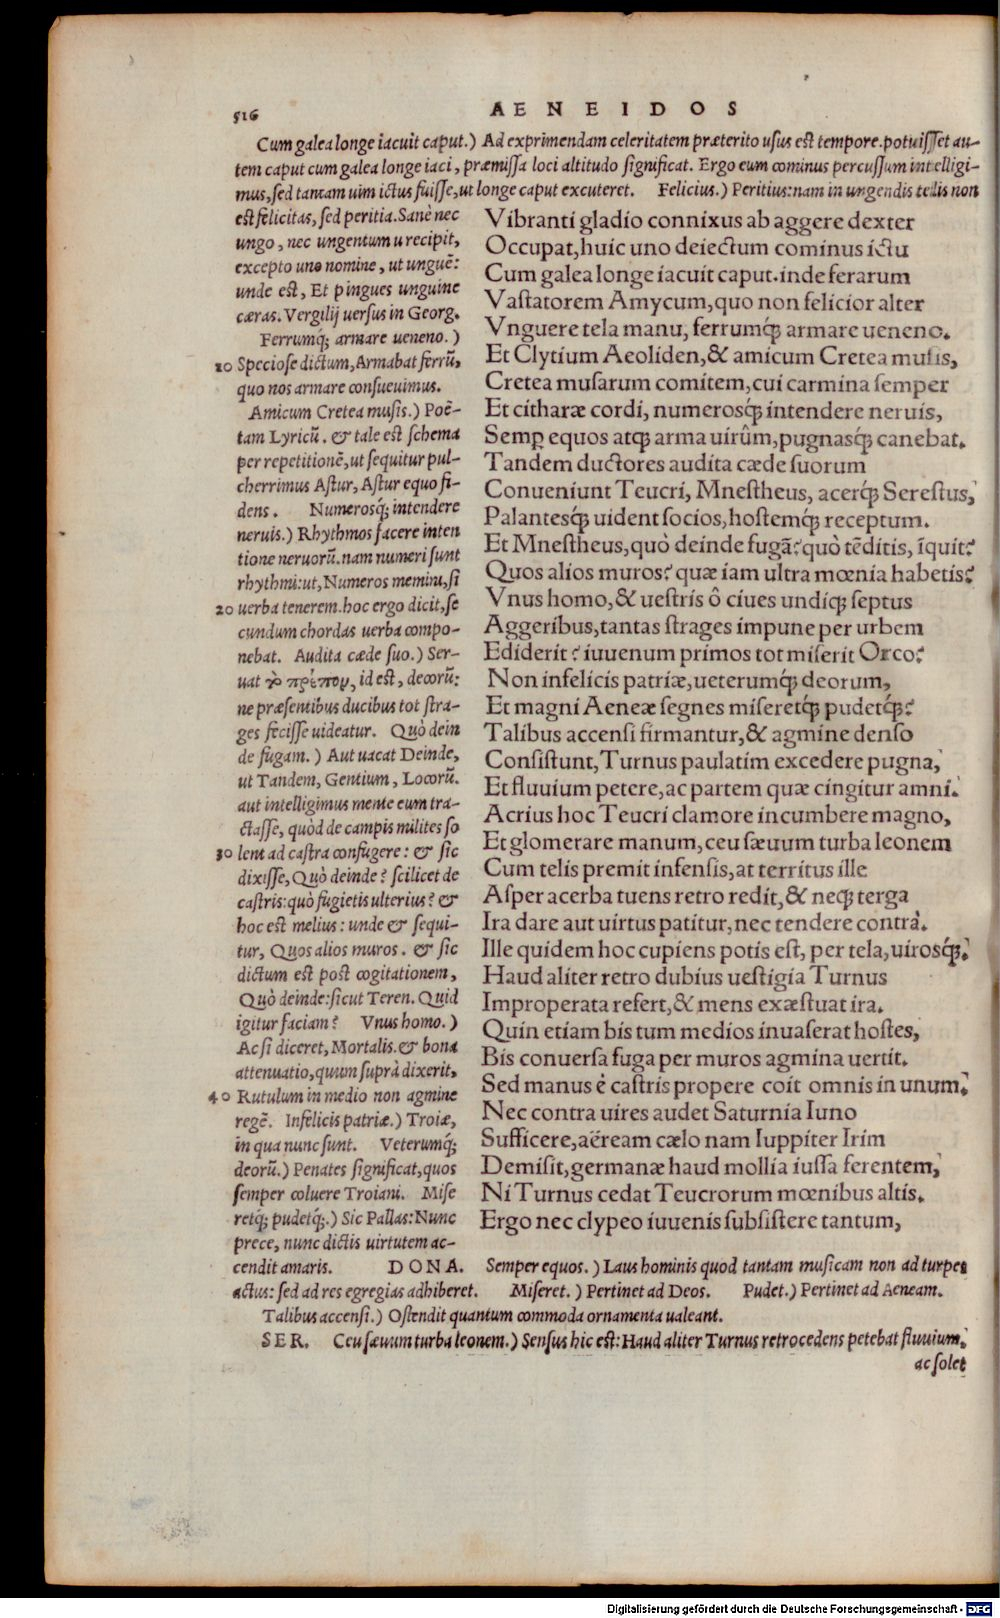 516
AENEIDOS
Cum galea longe iacuit caput.) Ad exprimendam celeritatem præterito usus est tempore. potuisset au-
tem caput cum galea longe iaci, præmissa loci altitudo significat. Ergo eum cominus percussum intelligi-
mus, sed tantam uim ictus fuisse, ut longe caput excuteret. Felicius.) Peritius: nam in ungendis telis non
est felicitas, sed peritia. Sanè nec
ungo, nec ungentum u recipit,
excepto uno nomine, ut unguē:
unde est, Et pingues unguine
cæras. Vergilij uersus in Georg.
Ferrumq́; armare ueneno.)
10 Speciose dictum, Armabat ferrū,
quo nos armare consueuimus.
Amicum Cretea musis.) Poë-
tam Lyricū. & tale est schema
per repetitionē, ut sequitur pul-
cherrimus Astur, Astur equo fi-
dens. Numerosq́; intendere
neruis.) Rhythmos facere inten
tione neruorū. nam numeri sunt
rhythmi: ut, Numeros memini, si
20 uerba tenerem. hoc ergo dicit, se
cundum chordas uerba compo-
nebat. Audita cæde suo.) Ser-
uat τὸ πρέπον, id est, decorū:
ne præsentibus ducibus tot stra-
ges fecisse uideatur. Quò dein
de fugam.) Aut uacat Deinde,
ut Tandem, Gentium, Locorū.
aut intelligimus mente eum tra-
ctasse, quòd de campis milites so
30 lent ad castra confugere: & sic
dixisse, Quò deinde? scilicet de
castris: quò fugietis ulterius? &
hoc est melius: unde & sequi-
tur, Quos alios muros. & sic
dictum est post cogitationem,
Quò deinde: sicut Teren. Quid
igitur faciam? Vnus homo.)
Ac si diceret, Mortalis. & bona
attenuatio, quum suprà dixerit,
40 Rutulum in medio non agmine
regē. Infelicis patriæ.) Troiæ,
in qua nunc sunt. Veterumq́;
deorū.) Penates significat, quos
semper coluere Troiani. Mise
retq́; pudetq́;.) Sic Pallas: Nunc
prece, nunc dictis uirtutem ac-
cendit amaris. DONA. Semper equos.) Laus hominis quod tantam musicam non ad turpes
actus: sed ad res egregias adhiberet. Miseret.) Pertinet ad Deos. Pudet.) Pertinet ad Aeneam.
Talibus accensi.) Ostendit quantum commoda ornamenta ualeant.
SER. Ceu sæuum turba leonem.) Sensus hic est: Haud aliter Turnus retrocedens petebat fluuium,
ac solet
Vibranti gladio connixus ab aggere dexter
Occupat, huic uno deiectum cominus ictu
Cum galea longe iacuit caput. inde ferarum
Vastatorem Amycum, quo non felicior alter
Vnguere tela manu, ferrumq́; armare ueneno.
Et Clytium Aeoliden, & amicum Cretea musis,
Cretea musarum comitem, cui carmina semper
Et citharæ cordi, numerosq́; intendere neruis,
Semꝑ equos atq; arma uirûm, pugnasq́; canebat.
Tandem ductores audita cæde suorum
Conueniunt Teucri, Mnestheus, acerq́; Serestus,
Palantesq́; uident socios, hostemq́; receptum.
Et Mnestheus, quò deinde fugā? quò tēditis, īquit?
Quos alios muros? quæ iam ultra mœnia habetis?
Vnus homo, & uestris ô ciues undiq; septus
Aggeribus, tantas strages impune per urbem
Ediderit? iuuenum primos tot miserit Orco?
Non infelicis patriæ, ueterumq́; deorum,
Et magni Aeneæ segnes miseretq́; pudetq́;?
Talibus accensi firmantur, & agmine denso
Consistunt, Turnus paulatim excedere pugna,
Et fluuium petere, ac partem quæ cingitur amni.
Acrius hoc Teucri clamore incumbere magno,
Et glomerare manum, ceu sæuum turba leonem
Cum telis premit infensis, at territus ille
Asper acerba tuens retro redit, & neq; terga
Ira dare aut uirtus patitur, nec tendere contrà.
Ille quidem hoc cupiens potis est, per tela, uirosq́;.
Haud aliter retro dubius uestigia Turnus
Improperata refert, & mens exæstuat ira.
Quin etiam bis tum medios inuaserat hostes,
Bis conuersa fuga per muros agmina uertit.
Sed manus è castris propere coit omnis in unum,
Nec contra uires audet Saturnia Iuno
Sufficere, aëream cælo nam Iuppiter Irim
Demisit, germanæ haud mollia iussa ferentem,
Ni Turnus cedat Teucrorum mœnibus altis.
Ergo nec clypeo iuuenis subsistere tantum,
Digitalisierung gefördert durch die Deutsche Forschungsgemeinschaft - DFG